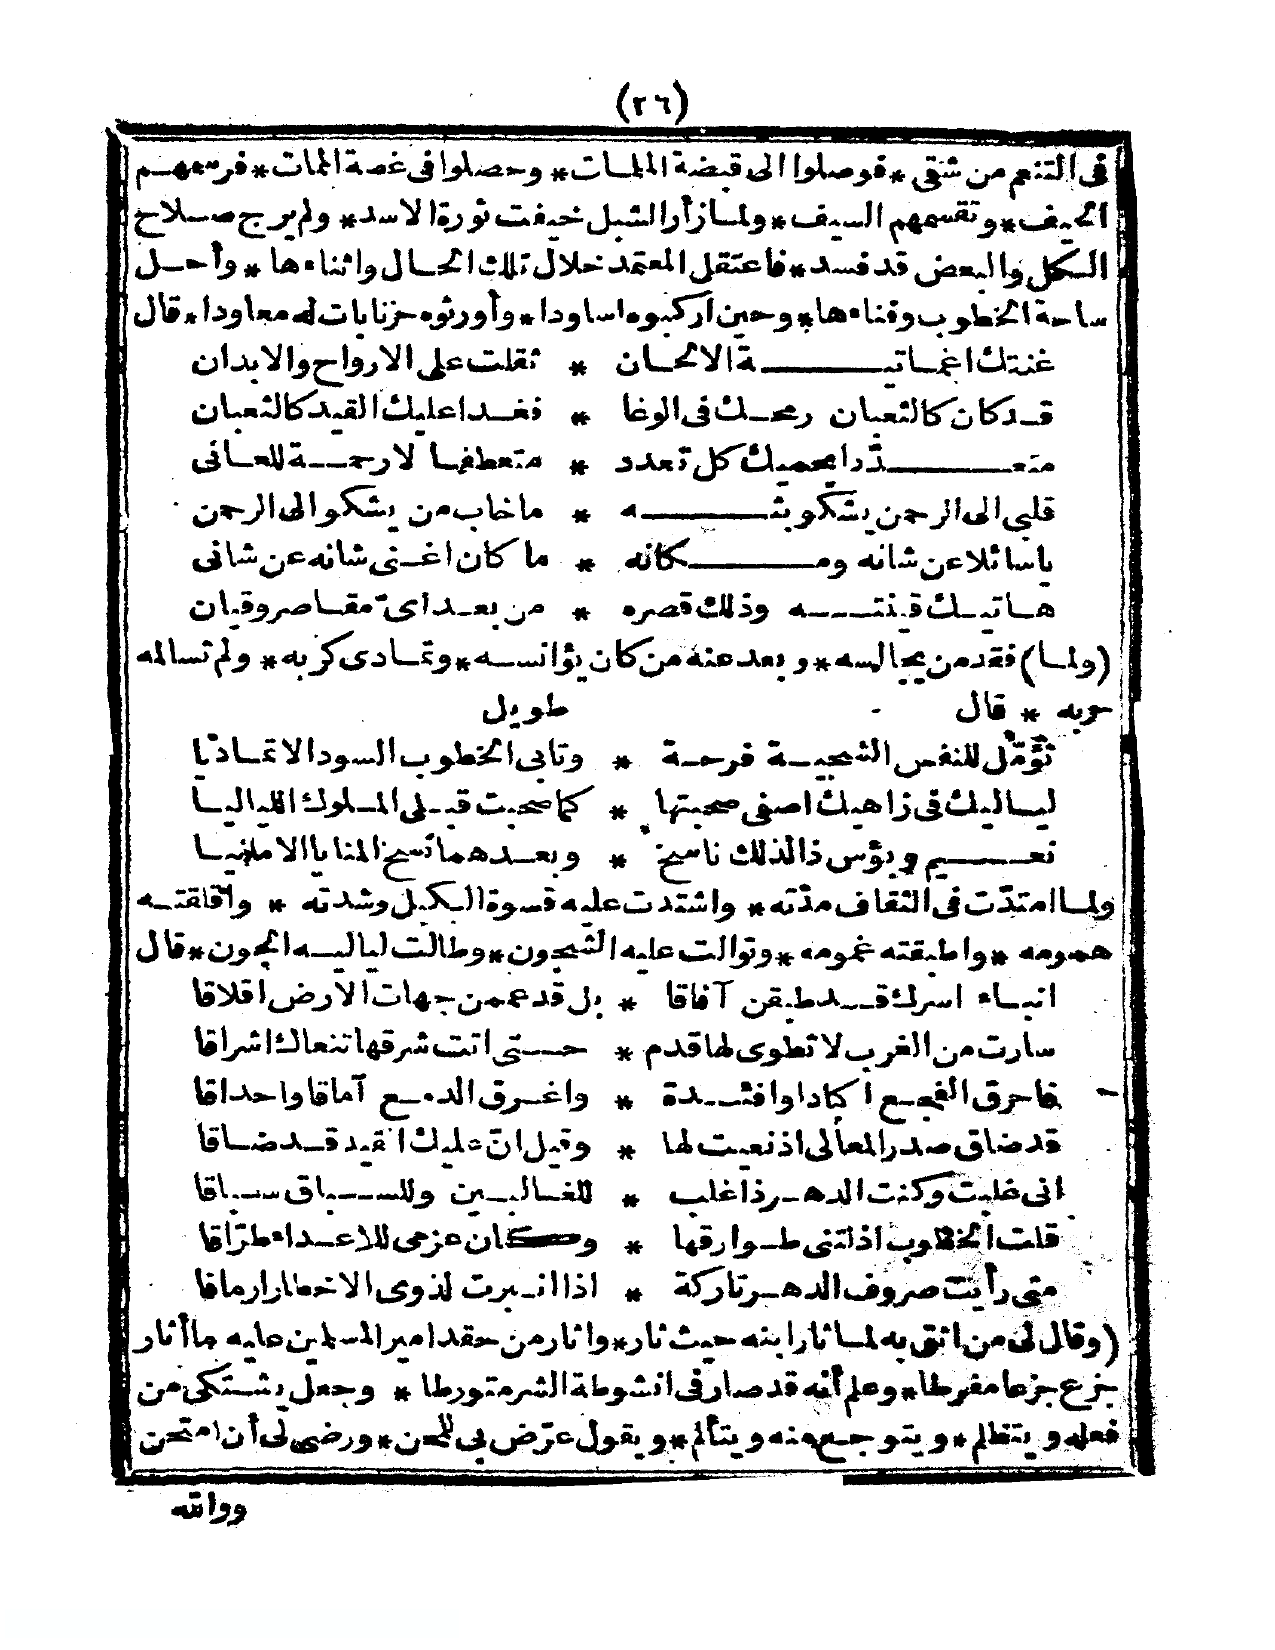 (٢٦)
فى التنعم من شقى * فوصلوا الى قبضة الملمات * وحصلوا فى غصة الممات * فرتعهم
الحيف * وتقسمهم السيف * ولما زأر الشبل خيفت ثورة الاسد * ولم يرج صلاح
الكل والبعض قد فسد * فاعتقل المعتمد خلال تلك الحال واثناءها * وأحل
ساحة الخطوب وفناءها * وحين أركبوه اساودا * وأورثوه حزنا بات له معاودا * قال
غنتك اغماتية الالحان * ثقلت على الارواح والابدان
قد كان كالثعبان رمحك فى الوغا * فغدا عليك القيد كالثعبان
متعدّدا يحميك كل تعدد * متعطفا لا رحمة للعانى
قلبى الى الرحمن يشكو بثه * ما خاب من يشكو الى الرحمن
يا سائلا عن شانه ومكانه * ما كان اغنى شانه عن شانى
هاتيك قينته وذلك قصره * من بعد أىّ مقاصر وقيان
(ولما) فقد من يجالسه * وبعد عنه من كان يؤانسه * وتمادى كربه * ولم تسالمه
حربه * قال طويل
تؤمّل للنفس الشجية فرحة * وتابى الخطوب السود الا تماديا
لياليك فى زاهيك اصفى صحبتها * كما صحبت قبلى الملوك اللياليا
نعيم وبؤس ذا لذلك ناسخ * وبعدهما نسخ المنايا الامانيا
ولما امتدّت فى الثقاف مدّته * واشتدت عليه قسوة الكبل وشدته * واقلقته
همومه * واطبقته غمومه * وتوالت عليه الشجون * وطالت لياليه الجون * قال
انباء اسرك قد طبقن آفاقا * بل قد عمن جهات الارض اقلاقا
سارت من الغرب لا تطوى لها قدم * حتى اتت شرقها تنعاك اشراقا
فاحرق الفجع اكادا وافئدة * واغرق الدمع آماقا واحداقا
قد ضاق صدر المعالى اذ نعيت لها * وقيل ان عليك القيد قد ضاقا
انى غلبت وكنت الدهر ذا غلب * للغالبين وللسباق سباقا
قلت الخطوب اذلتنى طوارقها * وكان عزمى للاعداء طرّاقا
متى رأيت صروف الدهر تاركة * اذا انبرت لذوى الاخطار ارماقا
(وقال لى من اثق به لما ثار ابنه حيث ثار * واثار من حقد امير المسلمين عليه ما أثار
جزع جزعا مفرطا * وعلم أنه قد صار فى انشوطة الشر متورطا * وجعل يشتكى من
فعله ويتظلم * ويتوجع منه ويتألم * ويقول عرّض بى للمحن * ورضى لى أن امتحن
ووالله